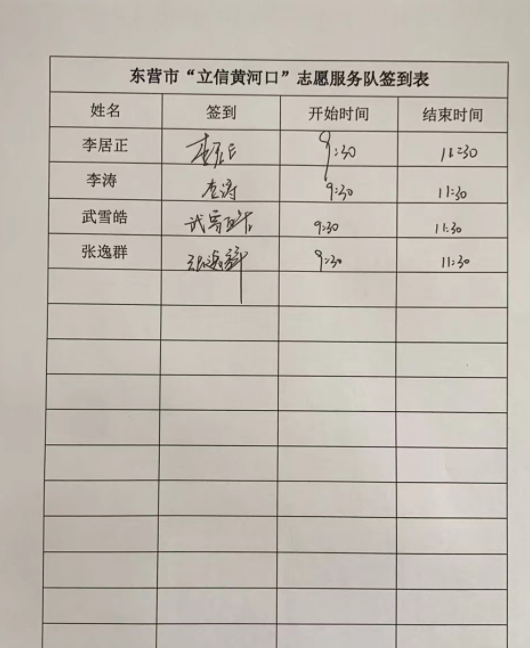 东营市“立信黄河口”志愿服务队签到表
姓名 签到 开始时间 结束时间
李居正 李居正 9:30 11:30
李涛 李涛 9:30 11:30
武雪皓 武雪皓 9:30 11:30
张逸群 张逸群 9:30 11:30